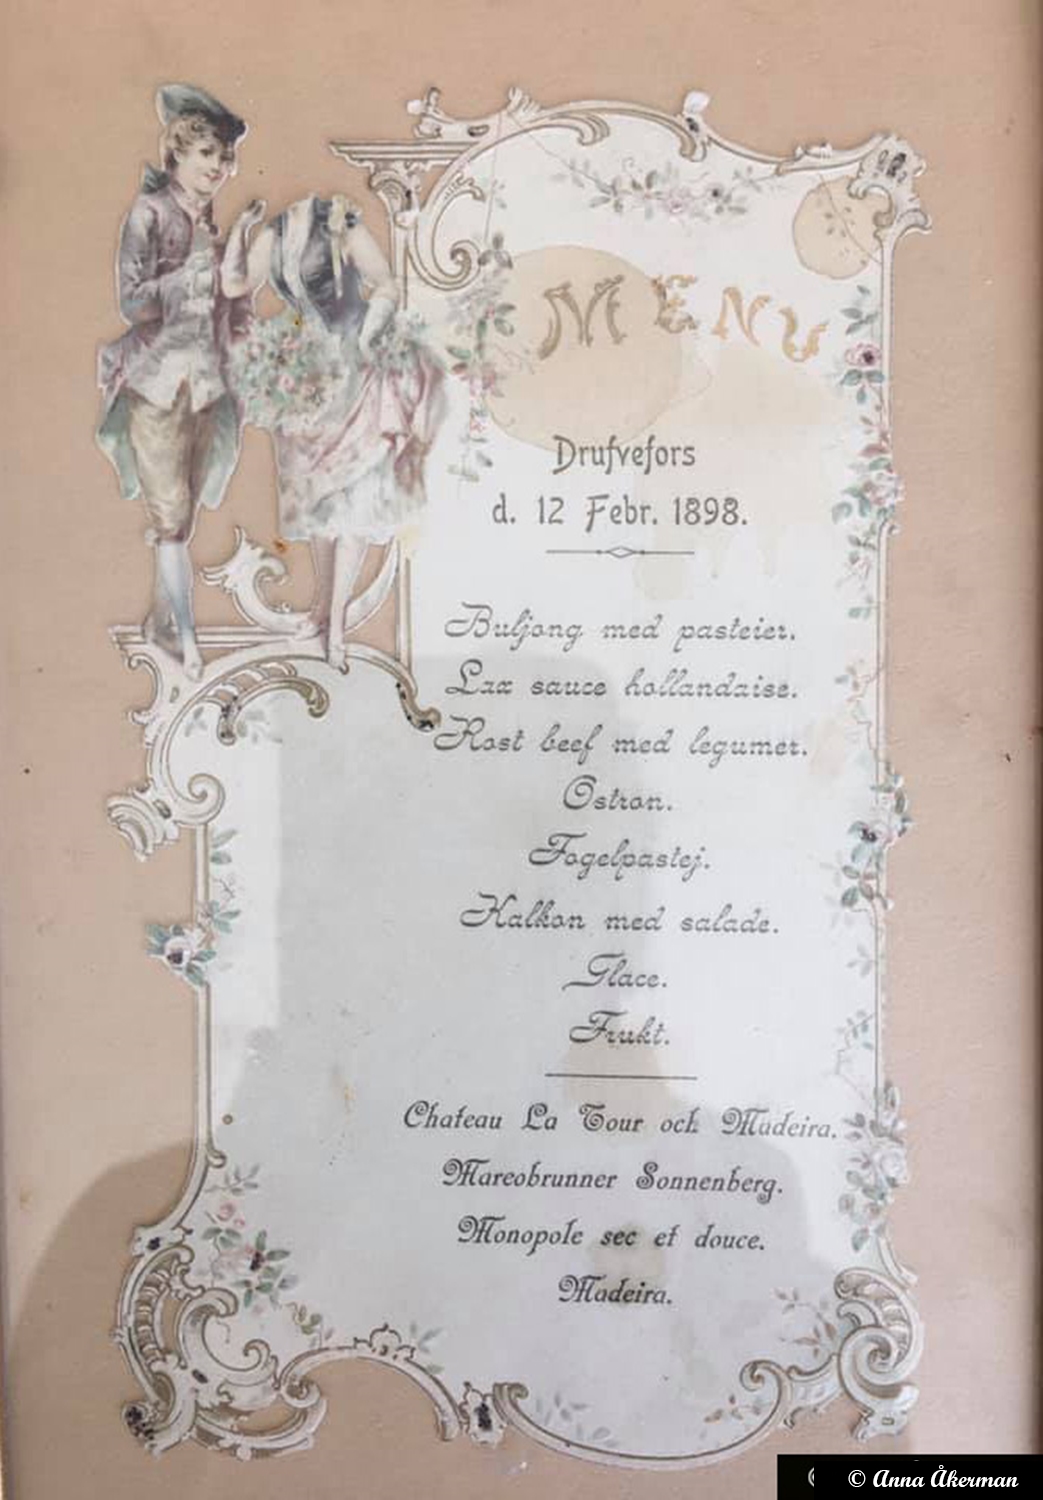 MENU
Drufvefors
d. 12 Febr. 1898.
Buljong med pasteier.
Lax sauce hollandaise.
Rost beef med legumer.
Ostron.
Fogelpastej.
Kalkon med salade.
Glace.
Frukt.
Chateau La Tour och Madeira.
Mareobrunner Sonnenberg.
Monopole sec et douce.
Madeira.
© Anna Åkerman